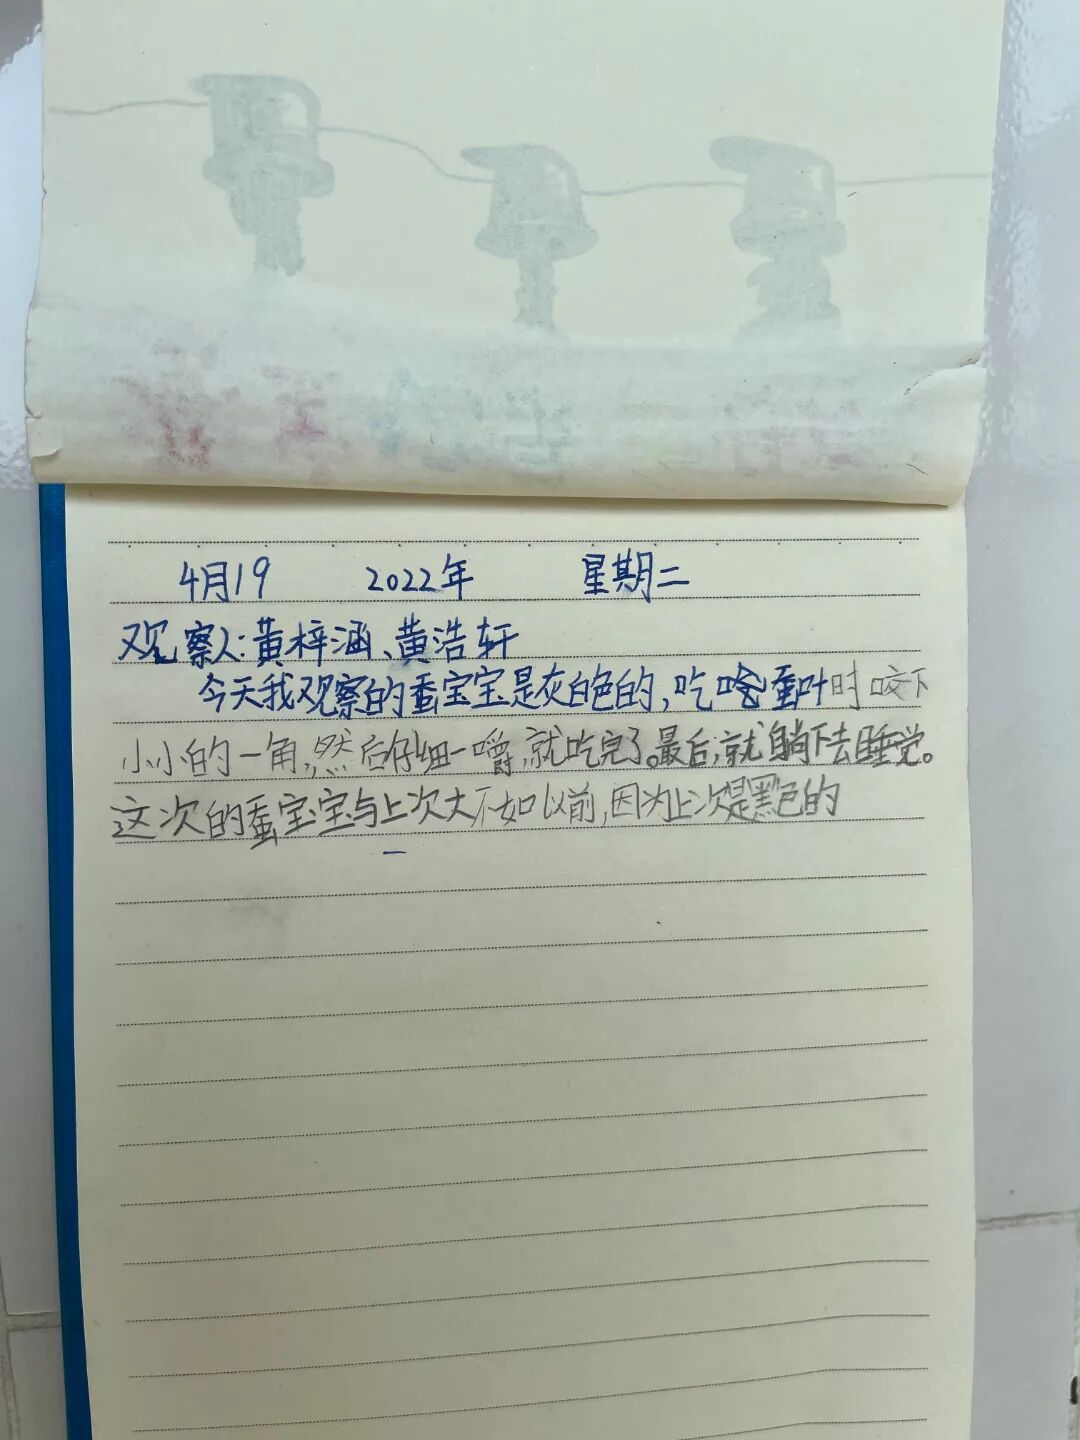 4月19 2022年 星期二
观察人:黄梓涵、黄浩轩
今天我观察的蚕宝宝是灰白色的,吃啥蚕叶时咬下
小小的一角,然后仔细一嚼,就吃完了。最后,就躺下去睡觉。
这次的蚕宝宝与上次大不如以前,因为上次是黑色的